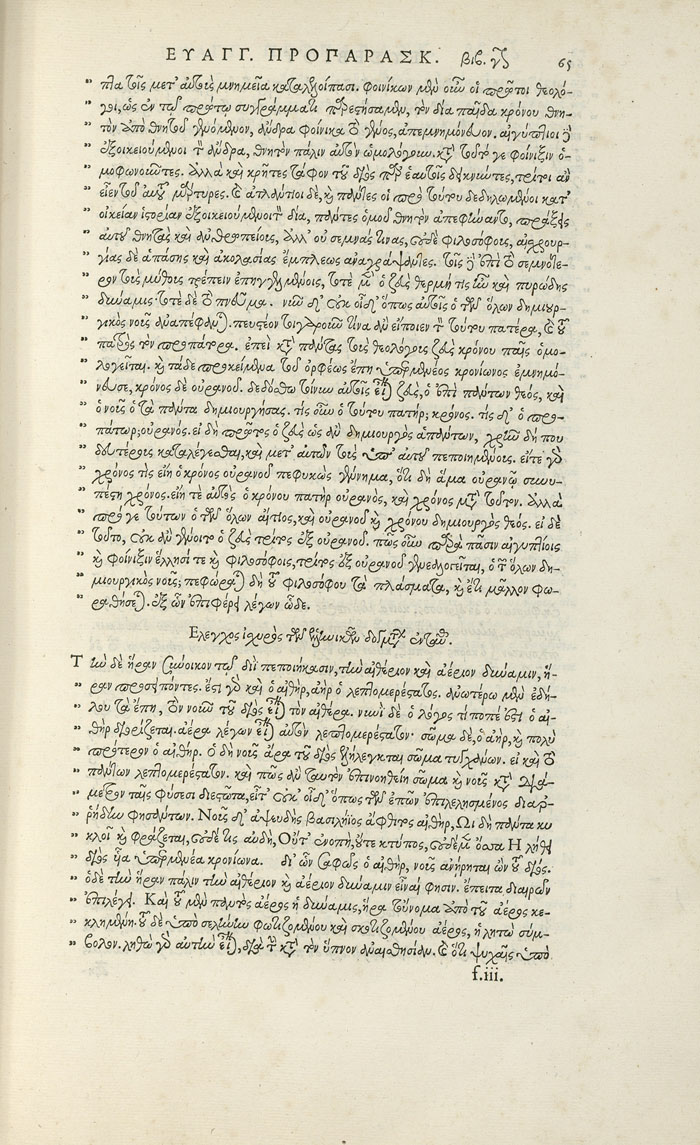 ΕΥΑΓΓ. ΠΡΟΠΑΡΑΣΚ. βιβ. γ 65
πλα τοῖς μετ' αὐτοὺς μνημεῖα καταλελοίπασι. φοινίκων μὲν οὖν οἱ πρῶτοι θεολό-
γοι, ὡς ἐν τῷ πρώτῳ συγγράμματι παρεστήσαμεν, τὸν δία παῖδα κρόνου θνη-
τὸν ἀπὸ θνητοῦ γενόμενον, ἄνδρα φοίνικα τὸ γένος, ἀπεμνημόνευον. αἰγύπτιοι δὲ
ἐξοικειούμενοι τὸν ἄνδρα, θνητὸν πάλιν αὐτὸν ὡμολόγουν. κατὰ τοῦτό γε φοίνιξιν ὁ-
μοφωνοῦντες. ἀλλὰ καὶ κρῆτες τάφον τοῦ διὸς παρ' ἑαυτοῖς δεικνύντες, τρίτοι ἂν
εἶεν τοῦ αὐτοῦ μάρτυρες. καὶ ἀτλάντιοι δὲ, καὶ πάντες οἱ πρὸ τούτου δεδηλωμένοι κατ'
οἰκείαν ἱστορίαν ἐξοικειούμενοι τὸν δία, πάντες ὁμοῦ θνητὸν ἀπεφήναντο, πράξεις
αὐτοῦ θνητὰς καὶ ἀνθρωπείους, ἀλλ' οὐ σεμνάς τινας, οὐδὲ φιλοσόφους, αἰσχρουρ-
γίας δὲ ἁπάσης καὶ ἀκολασίας ἔμπλεως ἀναγράψαντες. τοῖς δὲ ἐπὶ τὸ σεμνότε-
ρον τοὺς μύθους τρέπειν ἐπηγγελμένοις, τοτὲ μὲν ὁ ζεὺς θερμή τις ἦν καὶ πυρώδης
δύναμις τοτὲ δὲ τὸ πνεῦμα. νῦν δ' οὐκ οἶδ' ὅπως αὐτοῖς ὁ τῶν ὅλων δημιουρ-
γικὸς νοῦς ἀναπέφανται. πευστέον τοιγαροῦν τίνα ἂν εἴποιεν τὸν τούτου πατέρα, καὶ τὸν τοῦ
πατρὸς τὸν προπάτορα. ἐπεὶ κατὰ πάντας τοὺς θεολόγους ζεὺς κρόνου παῖς ὁμο-
λογεῖται. καὶ τάδε προκείμενα τοῦ ὀρφέως ἔπη ὑπερμενέος κρονίωνος ἐμνημό-
νευσε, κρόνος δὲ οὐρανοῦ. δεδόσθω τοίνυν αὐτοῖς εἶναι ζεὺς, ὁ ἐπὶ πάντων θεὸς, καὶ
ὁ νοῦς ὁ τὰ πάντα δημιουργήσας. τίς οὖν ὁ τούτου πατήρ; κρόνος. τίς δ' ὁ προ-
πάτωρ; οὐρανός. εἰ δὴ πρῶτος ὁ ζεὺς ὡς ἂν δημιουργὸς ἁπάντων, χρῆν δή που
δευτέρους καταλέγεσθαι, καὶ μετ' αὐτὸν τοὺς ὑπ' αὐτοῦ πεποιημένους. εἴτε γὰρ
χρόνος τις εἴη ὁ κρόνος οὐρανοῦ πεφυκὼς γέννημα, ὅτι δὴ ἅμα οὐρανῷ συνυ-
πέστη χρόνος. εἴη τε αὐτὸς ὁ κρόνου πατὴρ οὐρανός, καὶ χρόνος μετὰ τοῦτον. ἀλλὰ
πρό γε τούτων ὁ τῶν ὅλων αἴτιος, καὶ οὐρανοῦ καὶ χρόνου δημιουργὸς θεός. εἰ δὲ
τοῦτο, οὐκ ἂν γένοιτο ὁ ζεὺς τρίτος ἐξ οὐρανοῦ. πῶς οὖν παρὰ πᾶσιν αἰγυπτίοις
καὶ φοίνιξιν ἕλλησί τε καὶ φιλοσόφοις, τρίτος ἐξ οὐρανοῦ γενεαλογεῖται, ὁ τῶν ὅλων δη-
μιουργικὸς νοῦς; πεφώραται δὴ τοῦ φιλοσόφου τὰ πλάσματα, καὶ ἔτι μᾶλλον φω-
ραθήσεται. ἐξ ὧν ἐπιφέρει λέγων ὧδε.
Ελεγχος ἰσχυρὸς τῶν
Τὴν δὲ ἥραν σύνοικον τῷ διῒ πεποιήκασιν, τὴν αἰθέριον καὶ ἀέριον δύναμιν, ἥ-
ραν προσειπόντες. ἔστι γὰρ καὶ ὁ αἰθὴρ, ἀὴρ ὁ λεπτομερέστατος. ἀνωτέρω μὲν ἐδή-
λου τὰ ἔπη, τὸν νοῦν τοῦ διὸς εἶναι τὸν αἰθέρα. νυνὶ δὲ ὁ λόγος τί ποτέ ἐστι ὁ αἰ-
θὴρ διορίζεται. ἀέρα λέγων εἶναι αὐτὸν λεπτομερέστατον· σῶμα δὲ, ὁ ἀὴρ, καὶ πολὺ
πρότερον ὁ αἰθήρ. ὁ δὴ νοῦς ἄρα τοῦ διὸς ἐξήλεγκται σῶμα τυγχάνων. εἰ καὶ τὸ
πάντων λεπτομερέστατον. καὶ πῶς ἂν ταυτὸν ἐπινοηθείη σῶμα καὶ νοῦς κατὰ διά-
μετρον ταῖς φύσεσι διεστῶτα, εἶτ' οὐκ' οἶδ' ὅπως τῶν ἐπῶν ἐπιλελησμένος διαρ-
ρήδην φησάντων. Νοῦς δ' ἀψευδὴς βασιλήϊος ἄφθιτος αἰθὴρ, Ωι δὴ πάντα κυ
κλοῖ καὶ φράζεται, οὐδέ τις αὐδὴ, Οὔτ' ἐνοπὴ, οὔτε κτύπος, οὐδὲ μὲν ὄσσα Η λήθει
διὸς οὖα ὑπερμενέα κρονίωνα. δι' ὧν σαφῶς ὁ αἰθὴρ, νοῦς ἀνῄρηται ὢν τοῦ διός.
ὁ δὲ τὴν ἥραν πάλιν τὴν αἰθέριον καὶ ἀέριον δύναμιν εἶναί φησιν. ἔπειτα διαιρῶν
ἐπιλέγει. Καὶ τοῦ μὲν παντὸς ἀέρος ἡ δύναμις, ἥρα τοὔνομα ἀπὸ τοῦ ἀέρος κε-
κλημένη. τοῦ δὲ ὑπὸ σελήνην φωτιζομένου καὶ σκοτιζομένου ἀέρος, ἡ λητὼ σύμ-
βολον. ληθὼ γὰρ αὐτὴν εἶναι, διὰ τὴν κατὰ τὸν ὕπνον ἀναισθησίαν. καὶ ὅτι ψυχαῖς ὑπὸ
f.iii.